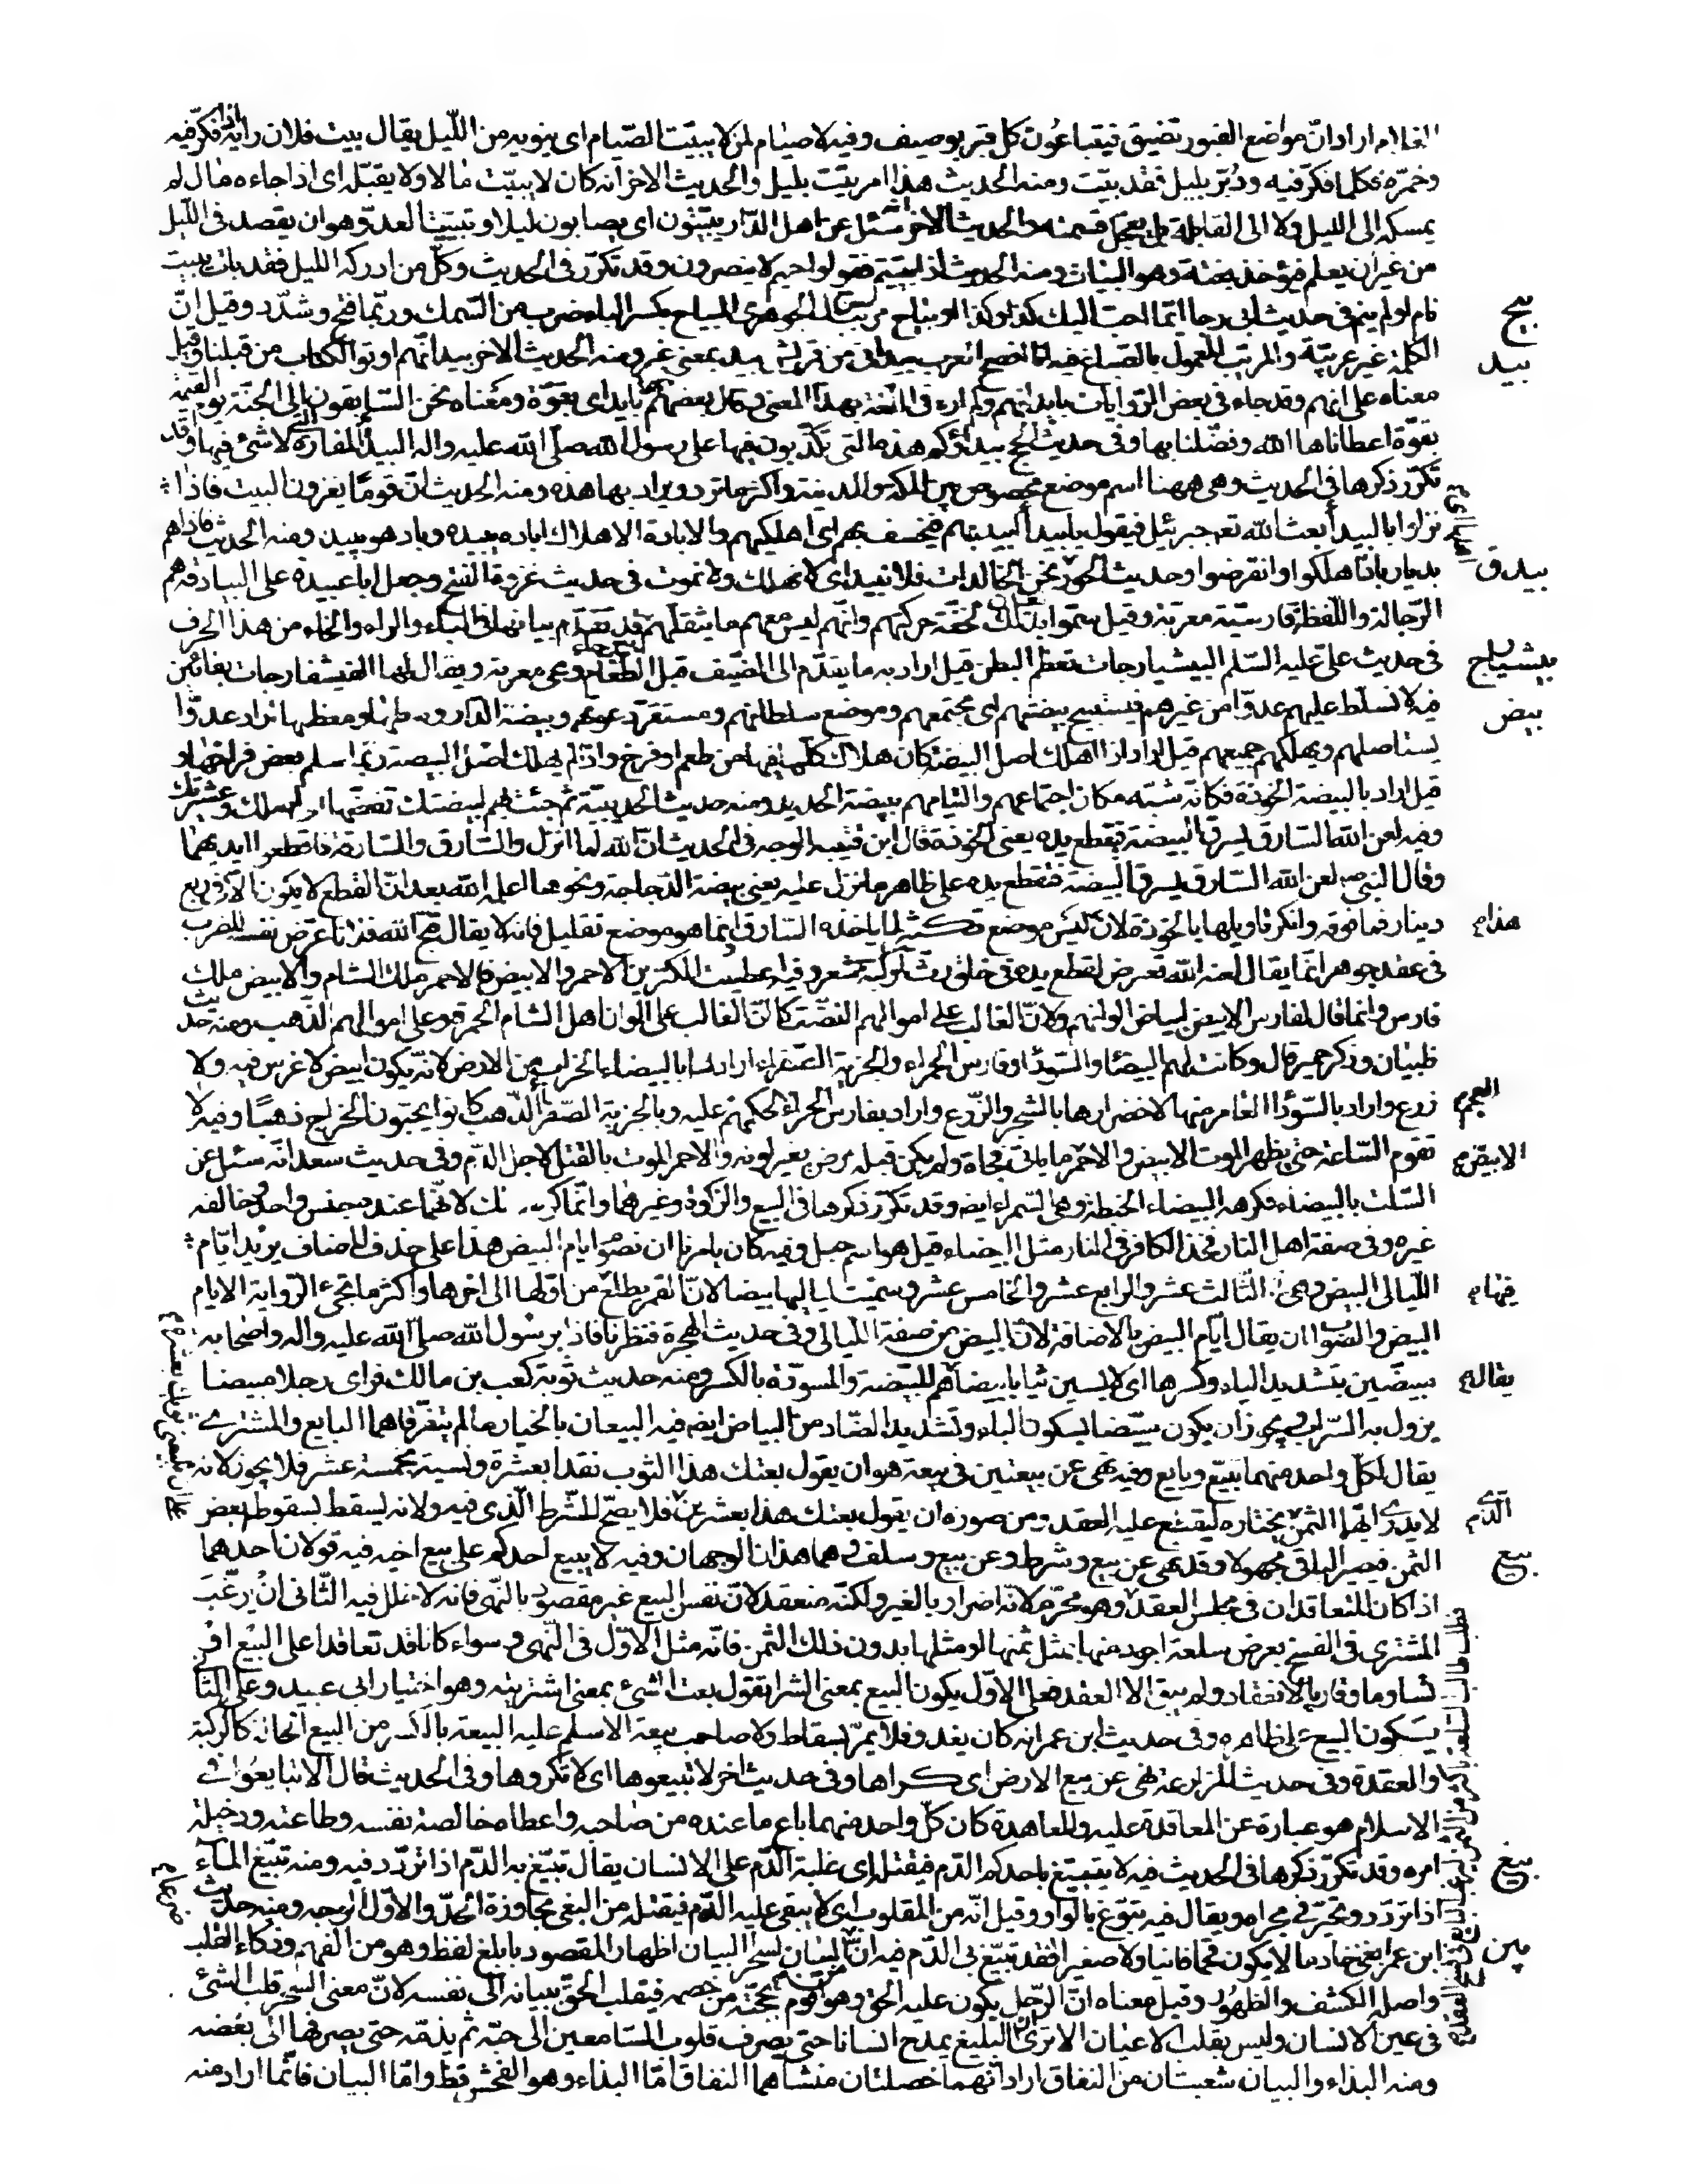 الغلام اراد ان مواضع القبور تضيق فيبتاعون كل قبر بوصيف وفيه لا صيام لمن لا يبيّت الصّيام اى ينويه من اللّيل يقال بيت فلان رأيه اذا فكّر فيه
وخمّره وكلما فكّر فيه ودُبّر بليل فقد بيّت ومنه الحديث هذا امر بيّت بليل والحديث الاخر انه كان لا يبيّت مالا ولا يقيّله اى اذا جاءه مال لم
يمسكه الى الليل ولا الى القائلة بل يعجل قسمته والحديث الاخر انه سئل عن اهل الدّار يبيّتون اى يصابون ليلا وتبييت العدوّ هو ان يقصد فى اللّيل
من غير ان يعلم فيؤخذ بغتة وهو البيات ومنه الحديث اذا بيّتم فقولوا حم لا ينصرون وقد تكرّر فى الحديث وكلّ من ادركه الليل فقد بات يبيت
نام او لم ينم فى حديث ابى رجا ايّما احب اليك كذا وكذا او بياج مربّب الجوهرى البياح بكسر الباء ضرب من السّمك وربّما فتح وشدّد وقيل انّ
الكلمة غير عربيّة والمربّب المعمول بالصّباغ فيه انا افصح العرب بيد انى من قريش بيد بمعنى غير ومنه الحديث الاخر بيد انّهم اوتوا الكتاب من قبلنا وقيل
معناه على انهم وقد جاء فى بعض الرّوايات بايد انّهم ولم اره فى اللّغة بهذا المعنى وقال بعضهم انها بايد اى بقوّة ومعناه نحن السّابقون الى الجنّة يوم القيمة
بقوّة اعطاناها الله وفضّلنا بها وفى حديث الحج بيداؤكم هذه التى تكذبون فيها على رسول الله صلّى الله عليه واله البيداء المفازة التى لا شئ فيها وقد
تكرّر ذكرها فى الحديث وهى ههنا اسم موضع مخصوص بين المكة والمدينة واكثر ما ترد ويراد بها هذه ومنه الحديث انّ قوما يغزون البيت فاذا
نزلوا بالبيداء بعث الله تعه جبرئيل فيقول يا بيداء ابيديهم فيخسف بهم اى اهلكيهم والابادة الاهلاك اباده يبيده وباد هو يبيد ومنه الحديث فاذا هم
بديار باد اهلها اى هلكوا وانقرضوا وحديث الحور نحن الخالدات فلا نبيد اى لا نهلك ولا نموت فى حديث غزوة الفتح وجعل ابا عبيدة على البيادقة هم
الرّجالة واللّفظة فارسيّة معربة وقيل سمّوا بذلك لخفّة حركتهم وانّهم ليس معهم ما يثقلهم قد تقدّم بيانها فى الباء والراء والحاء من هذا الحرف
فى حديث علىّ عليه السّلم البيشيارجات تعظم البطن قيل اراد به ما يقدّم الى الضّيف قبل الطّعام وهى معربة ويقال لها الفيشفارجات بفائين
فيه لا تسلّط عليهم عدوّا من غيرهم فيستبيح بيضتهم اى مجتمعهم وموضع سلطانهم ومستقرّ دعوتهم وبيضة الدّار وسطها ومعظمها اراد عدوّا
يستاصلهم ويهلكهم جميعهم قيل اراد اذا اهلك اصل البيضة كان هلاك كلّ ما فيها من طعم او فرخ واذا لم يهلك اصل البيضة ربّما سلم بعض فراخها و
قيل اراد بالبيضة الخوذة فكانّه شبّه مكان اجتماعهم والتيامهم ببيضة الحديد ومنه حديث الحديبيّة ثم جئت بهم لبيضتك تفضّها اى اهلك وعشيرتك
وفيه لعن الله السّارق يسرق البيضة فتقطع يده يعنى الخوذة قال ابن قتيبة الوجه فى الحديث انّ الله لما انزل والسّارق والسّارقة فاقطعوا ايديهما
وقال النبى صه لعن الله السّارق يسرق البيضة فتقطع يده على ظاهر ما نزل عليه يعنى بيضة الدّجاجة ونحوها ثم اعلمه الله بعد انّ القطع لا يكون الا فى ربع
دينار فما فوقه وانكر تاويلها بالخوذة لانّ هذا ليس موضع تكثير لما ياخذه السّارق انما هو موضع تقليل فانه لا يقال قبّح الله فلانا عرّض نفسه للضرب
فى عقد جوهر انّما يقال لعنه الله تعرض لقطع يده فى خلق رثّ او كبّة شعر وفيه اعطيت الكنزين الاحمر والابيض فالاحمر ملك الشام والابيض ملك
فارس وانما قال لفارس الابيض لبياض الوانهم ولانّ الغالب على اموالهم الفضّة كما انّ الغالب على الوان اهل الشام الحمرة وعلى اموالهم الذّهب ومنه حديث
ظبيان وذكر حمير قال وكانت لهم البيضاء والسّوداء وفارس الحمراء والجزية الصّفراء اراد بالبيضاء الخراب من الارض لانّه يكون ابيض لا غرس فيه ولا
زرع واراد بالسّوداء العامر منها لاخضرارها بالشجر والزّرع واراد بفارس الحمراء تحكمهم عليه وبالجزية الصّفراء الذّهب كانوا يجبون الخراج ذهبًا وفيه لا
تقوم السّاعة حتى يظهر الموت الابيض والاحمر ما ياتى فجاة ولم يكن قبله مرض يغير لونه والاحمر الموت بالقتل لاجل الدّم وفى حديث سعد انّه سئل عن
السّلت بالبيضاء فكرهه البيضاء الحنطة وهى السّمراء ايضه وقد تكرّر ذكرها فى البيع والزّكوة وغيرهما وانّما كره ذلك لانّهما عنده جنس واحد وخالفه
غيره وفى صفة اهل النار فخذ الكافر فى النار مثل البيضاء قيل هو اسم جبل وفيه كان يامرنا ان نصوم ايام البيض هذا على حذف المضاف يريد ايّام
اللّيالى البيض وهى الثّالث عشر والرابع عشر والخامس عشر وسمّيت لياليها بيضا لانّ القمر يطلع فيها من اوّلها الى اخرها واكثر ما تجىء الرّواية الايام
البيض والصّواب ان يقال ايّام البيض بالاضافة لانّ البيض من صفة اللّيالى وفى حديث الهجرة فنظرنا فاذا برسول الله صلى الله عليه واله واصحابه
مبيّضين بتشديد الياء وكسرها اى لابسين ثيابا بيضا يقال هم المبيّضة والمسوّدة بالكسر ومنه حديث توبة كعب بن مالك فراى رجلا مبيضا
يزول به السّراب ويجوز ان يكون مبيّضا بسكون الباء وتشديد الضّاد من البياض ايضه فيه البيعان بالخيار ما لم يتفرّقا هما البايع والمشترى
يقال لكلّ واحد منهما بيّع وبايع وفيه نهى عن بيعتين فى بيعة هو ان يقول بعتك هذا الثوب نقدا بعشرة ونسية بخمسة عشر فلا يجوز لانه
لا يدرى ايّهما الثمن الّذى يختاره ليقع عليه العقد ومن صوره ان يقول بعتك هذا بعشرين فلا يصحّ للشّرط الّذى فيه ولانه يسقط بسقوطه بعض
الثمن فيصير الباقى مجهولا وقد نهى عن بيع وشرط وعن بيع وسلف وهما هذان الوجهان وفيه لا يبيع احدكم على بيع اخيه فيه قولان احدهما
اذا كان المتعاقدان فى مجلس العقد وهو محرّم لانّه اضرار بالغير ولكنّه منعقد لانّ نفس البيع غير مقصود بالنّهى فانه لا خلل فيه الثّانى ان يرغّب
المشترى فى الفسخ بعرض سلعة اجود منها بمثل ثمنها او مثلها بدون ذلك الثمن فانّه مثل الاوّل فى النّهى وسواء كانا قد تعاقدا على البيع او
تساوما وقاربا الانعقاد ولم يبق الا العقد فعلى الاوّل يكون البيع بمعنى الشرا تقول بعت الشئ بمعنى اشتريته وهو اختيار ابى عبيد وعلى الثّا
يكون البيع على ظاهره وفى حديث ابن عمر انه كان يغدو فلا يمرّ بسقاط ولا صاحب بيعة الا سلم عليه البيعة بالكسر من البيع الحالة كالركبة
والعقدة وفى حديث المزارعة نهى عن بيع الارض اى كراها وفى حديث اخر لا تبيعوها اى لا تكروها وفى الحديث قال الا تبايعونى
الاسلام هو عبارة عن المعاقدة عليه والمعاهدة كان كلّ واحد منهما باع ما عنده من صاحبه واعطاه خالصة نفسه وطاعته ودخيلة
امره وقد تكرّر ذكرها فى الحديث فيه لا يتبيّغ باحدكم الدّم فيقتله اى غلبة الدّم على الانسان يقال تبيّغ به الدّم اذا تردّد فيه ومنه تبيّغ الماء
اذا تردّد وتحيّر فى مجراه ويقال فيه تبوّغ بالواو وقيل انّه من المقلوب اى لا يبغى عليه الدّم فيقتله من البغى مجاوزة الحدّ والاوّل اوجه ومنه حديث
ابن عمر ابغنى خادما لا يكون قحما فانيا ولا صغيرا فقد تبيّغ بى الدّم فيه انّ من البيان لسحرا البيان اظهار المقصود بابلغ لفظ وهو من الفهم وذكاء القلب
واصله الكشف والظهور وقيل معناه انّ الرّجل يكون عليه الحق وهو اقوم بحجّته من خصمه فيقلب الحقّ ببيانه الى نفسه لانّ معنى السّحر قلب الشئ
فى عين الانسان وليس بقلب الاعيان الا ترى انّ البليغ يمدح انسانا حتى يصرف قلوب السّامعين الى حبّه ثم يذمّه حتى يصرفها الى بغضه
ومنه البذاء والبيان شعبتان من النفاق اراد انّهما خصلتان منشأهما النفاق امّا البذاء وهو الفحش فظ وامّا البيان فانّما اراد منه
بيج
بيد
بيدق
بيشيارج
بيض
هذام
فيهام
يقالم
بيع
بيغ
بين